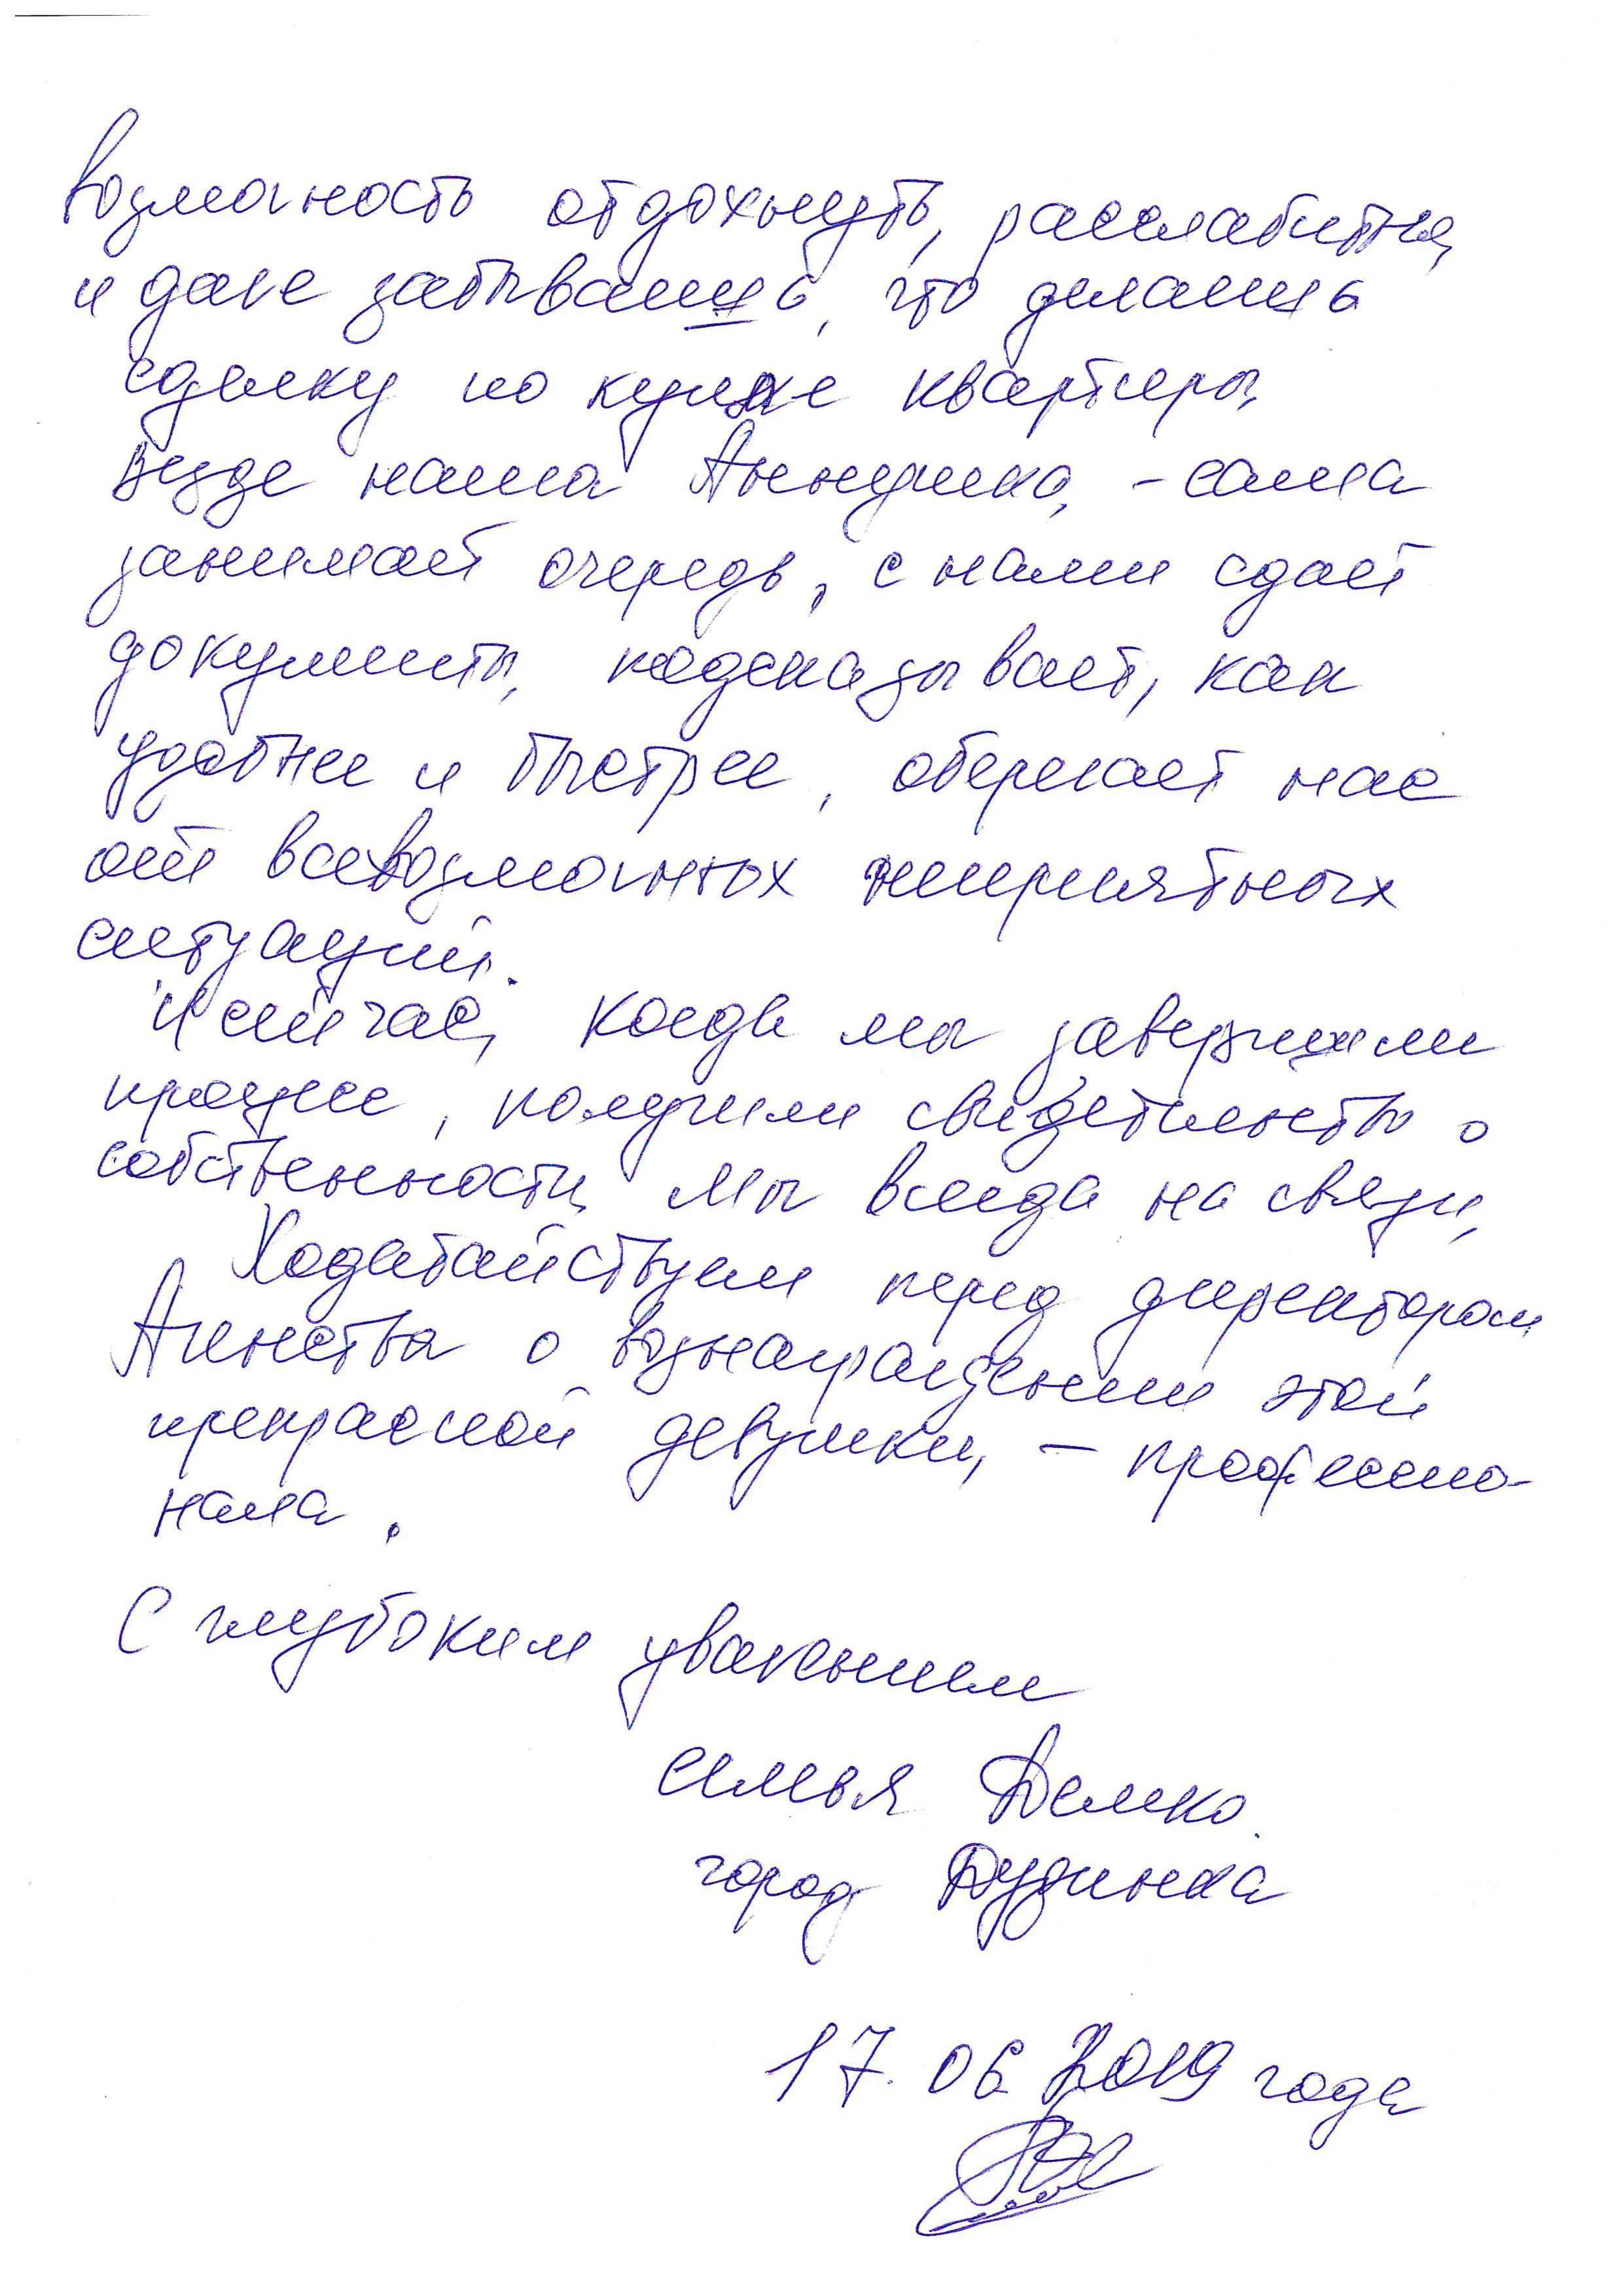 возможность отдохнуть, расслабиться,
и даже забываешь, что делаешь
сделку по купле квартиры,
везде наша Аннушка, - сама
занимает очередь, с нами сдает
документы, подсказывает, как
удобнее и быстрее, оберегает нас
от всевозможных неприятных
ситуаций.
И сейчас, когда мы завершили
процесс, получили свидетельство о
собственности, мы всегда на связи,
Ходатайствуем перед директором
Агенства о вознаграждении этой
прекрасной девушки, - профессио-
нала.
С глубоким уважением
семья Демко.
город Дудинка
17.06.2019 года